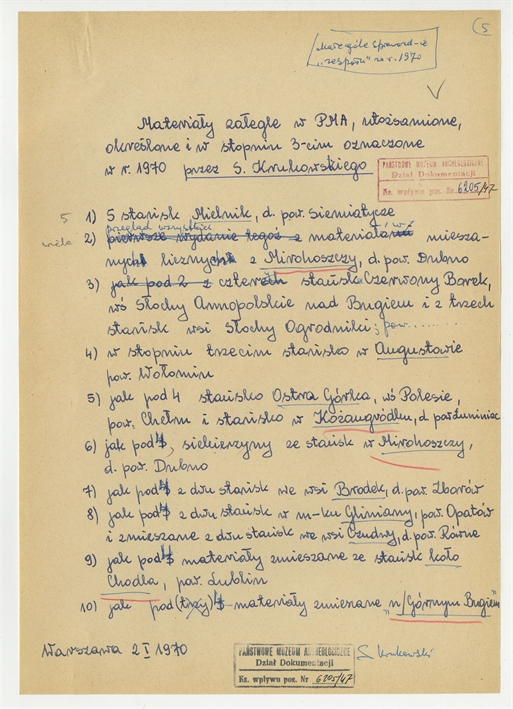 5
Małe gole sprawozd-ie
"zespołu" za r. 1970
Materiały zaległe w PMA, utożsamione,
określone i w stopniu 3-cim oznaczone
w r. 1970 przez S. Krukowskiego
PAŃSTWOWE MUZEUM ARCHEOLOGICZNE
Dział Dokumentacji
Ks. wpływu poz. Nr 6205/47
5 1) 5 stanisk Mielnik, d. pow. Siemiatycze
przegląd wszystkich
wiele 2) pierwsze wydanie tegoż z materiała miesza-
nych licznych z Mirohoszczy, d. pow. Dubno
3) jak pod 2 z czterech stanisk Czerwony Borek,
wś Słochy Annopolskie nad Bugiem i z trzech
stanisk wsi Słochy Ogrodniki; pow. ......
4) w stopniu trzecim stanisko w Augustowie
pow. Wołomin
5) jak pod 4 stanisko Ostra Górka, wś Polesie,
pow. Chełm i stanisko w Kożangródku, d. pow. Łuniniec
6) jak pod 4, siekierzyny ze stanisk w Mirohoszczy,
d. pow. Dubno
7) jak pod 4 z dwu stanisk we wsi Brodek, d. pow. Zborów
8) jak pod 4 z dwu stanisk w m-ku Gliniany, pow. Opatów
i zmieszane z dwu stanisk we wsi Czudwy, d. pow. Równe
9) jak pod 4 materiały zmieszane ze stanisk koło
Chodla, pow. Lublin
10) jak pod (trzy) 4 materiały zmieszane "n/Górnym Bugiem"
Warszawa 2 I 1970
PAŃSTWOWE MUZEUM ARCHEOLOGICZNE
Dział Dokumentacji
Ks. wpływu poz. Nr 6205/47
S. Krukowski